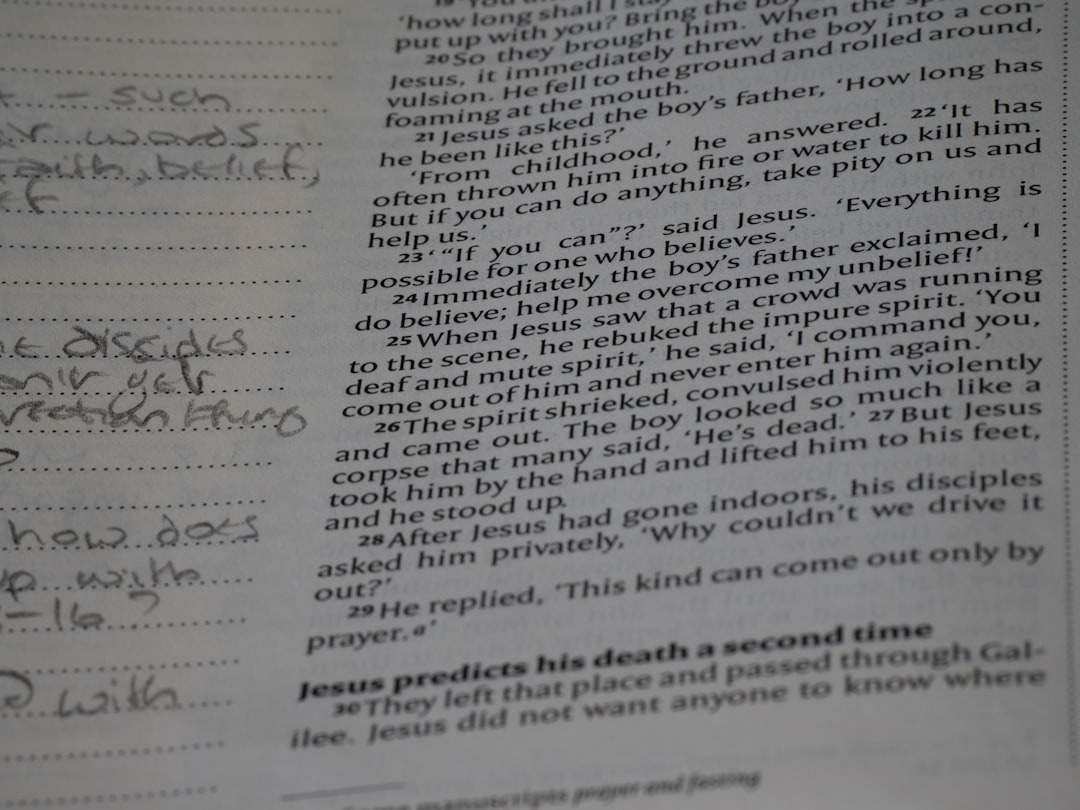 - such
words
faith, belief,
how does
with
-16?
with
'how long shall I stay
put up with you? Bring the boy
20 So they brought him. When the
Jesus, it immediately threw the boy into a con-
vulsion. He fell to the ground and rolled around,
foaming at the mouth.
21 Jesus asked the boy's father, 'How long has
he been like this?'
'From childhood,' he answered. 22 'It has
often thrown him into fire or water to kill him.
But if you can do anything, take pity on us and
help us.'
23 '"If you can"?' said Jesus. 'Everything is
possible for one who believes.'
24 Immediately the boy's father exclaimed, 'I
do believe; help me overcome my unbelief!'
25 When Jesus saw that a crowd was running
to the scene, he rebuked the impure spirit. 'You
deaf and mute spirit,' he said, 'I command you,
come out of him and never enter him again.'
26 The spirit shrieked, convulsed him violently
and came out. The boy looked so much like a
corpse that many said, 'He's dead.' 27 But Jesus
took him by the hand and lifted him to his feet,
and he stood up.
28 After Jesus had gone indoors, his disciples
asked him privately, 'Why couldn't we drive it
out?'
29 He replied, 'This kind can come out only by
prayer.a'
Jesus predicts his death a second time
30 They left that place and passed through Gal-
ilee. Jesus did not want anyone to know where
manuscripts prayer and fasting